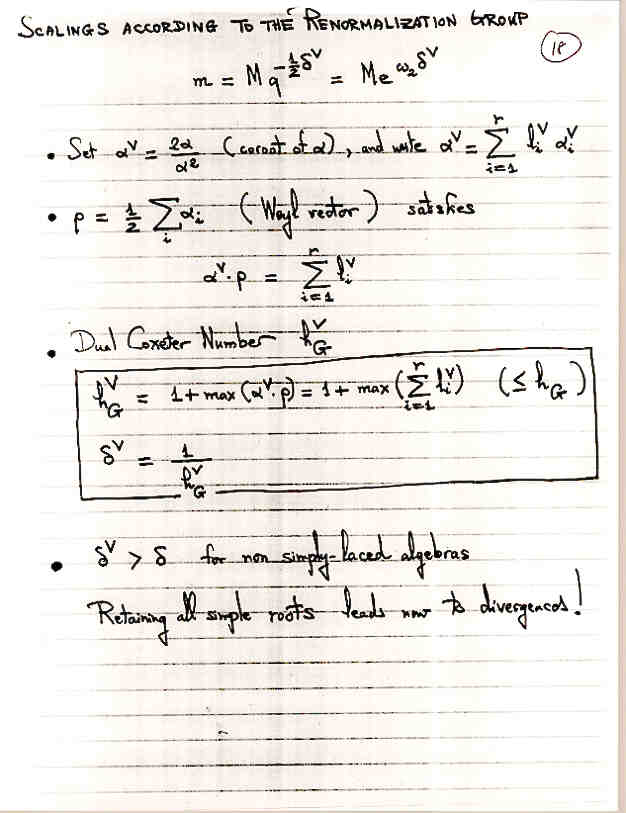 SCALINGS ACCORDING TO THE RENORMALIZATION GROUP
18
m = M q^{-½δ^∨} = M e^{ω₂δ^∨}
• Set α^∨ = 2α/α² (coroot of α), and write α^∨ = ∑_{i=1}^{r} l_i^∨ α_i^∨
• ρ = ½ ∑_i α_i (Weyl vector) satisfies
α^∨·ρ = ∑_{i=1}^{r} l_i^∨
• Dual Coxeter Number h_G^∨
h_G^∨ = 1 + max(α^∨·ρ) = 1 + max(∑_{i=1}^{r} l_i^∨) (≤ h_G)
δ^∨ = 1/h_G^∨
• δ^∨ > δ for non simply-laced algebras
Retaining all simple roots leads now to divergences!